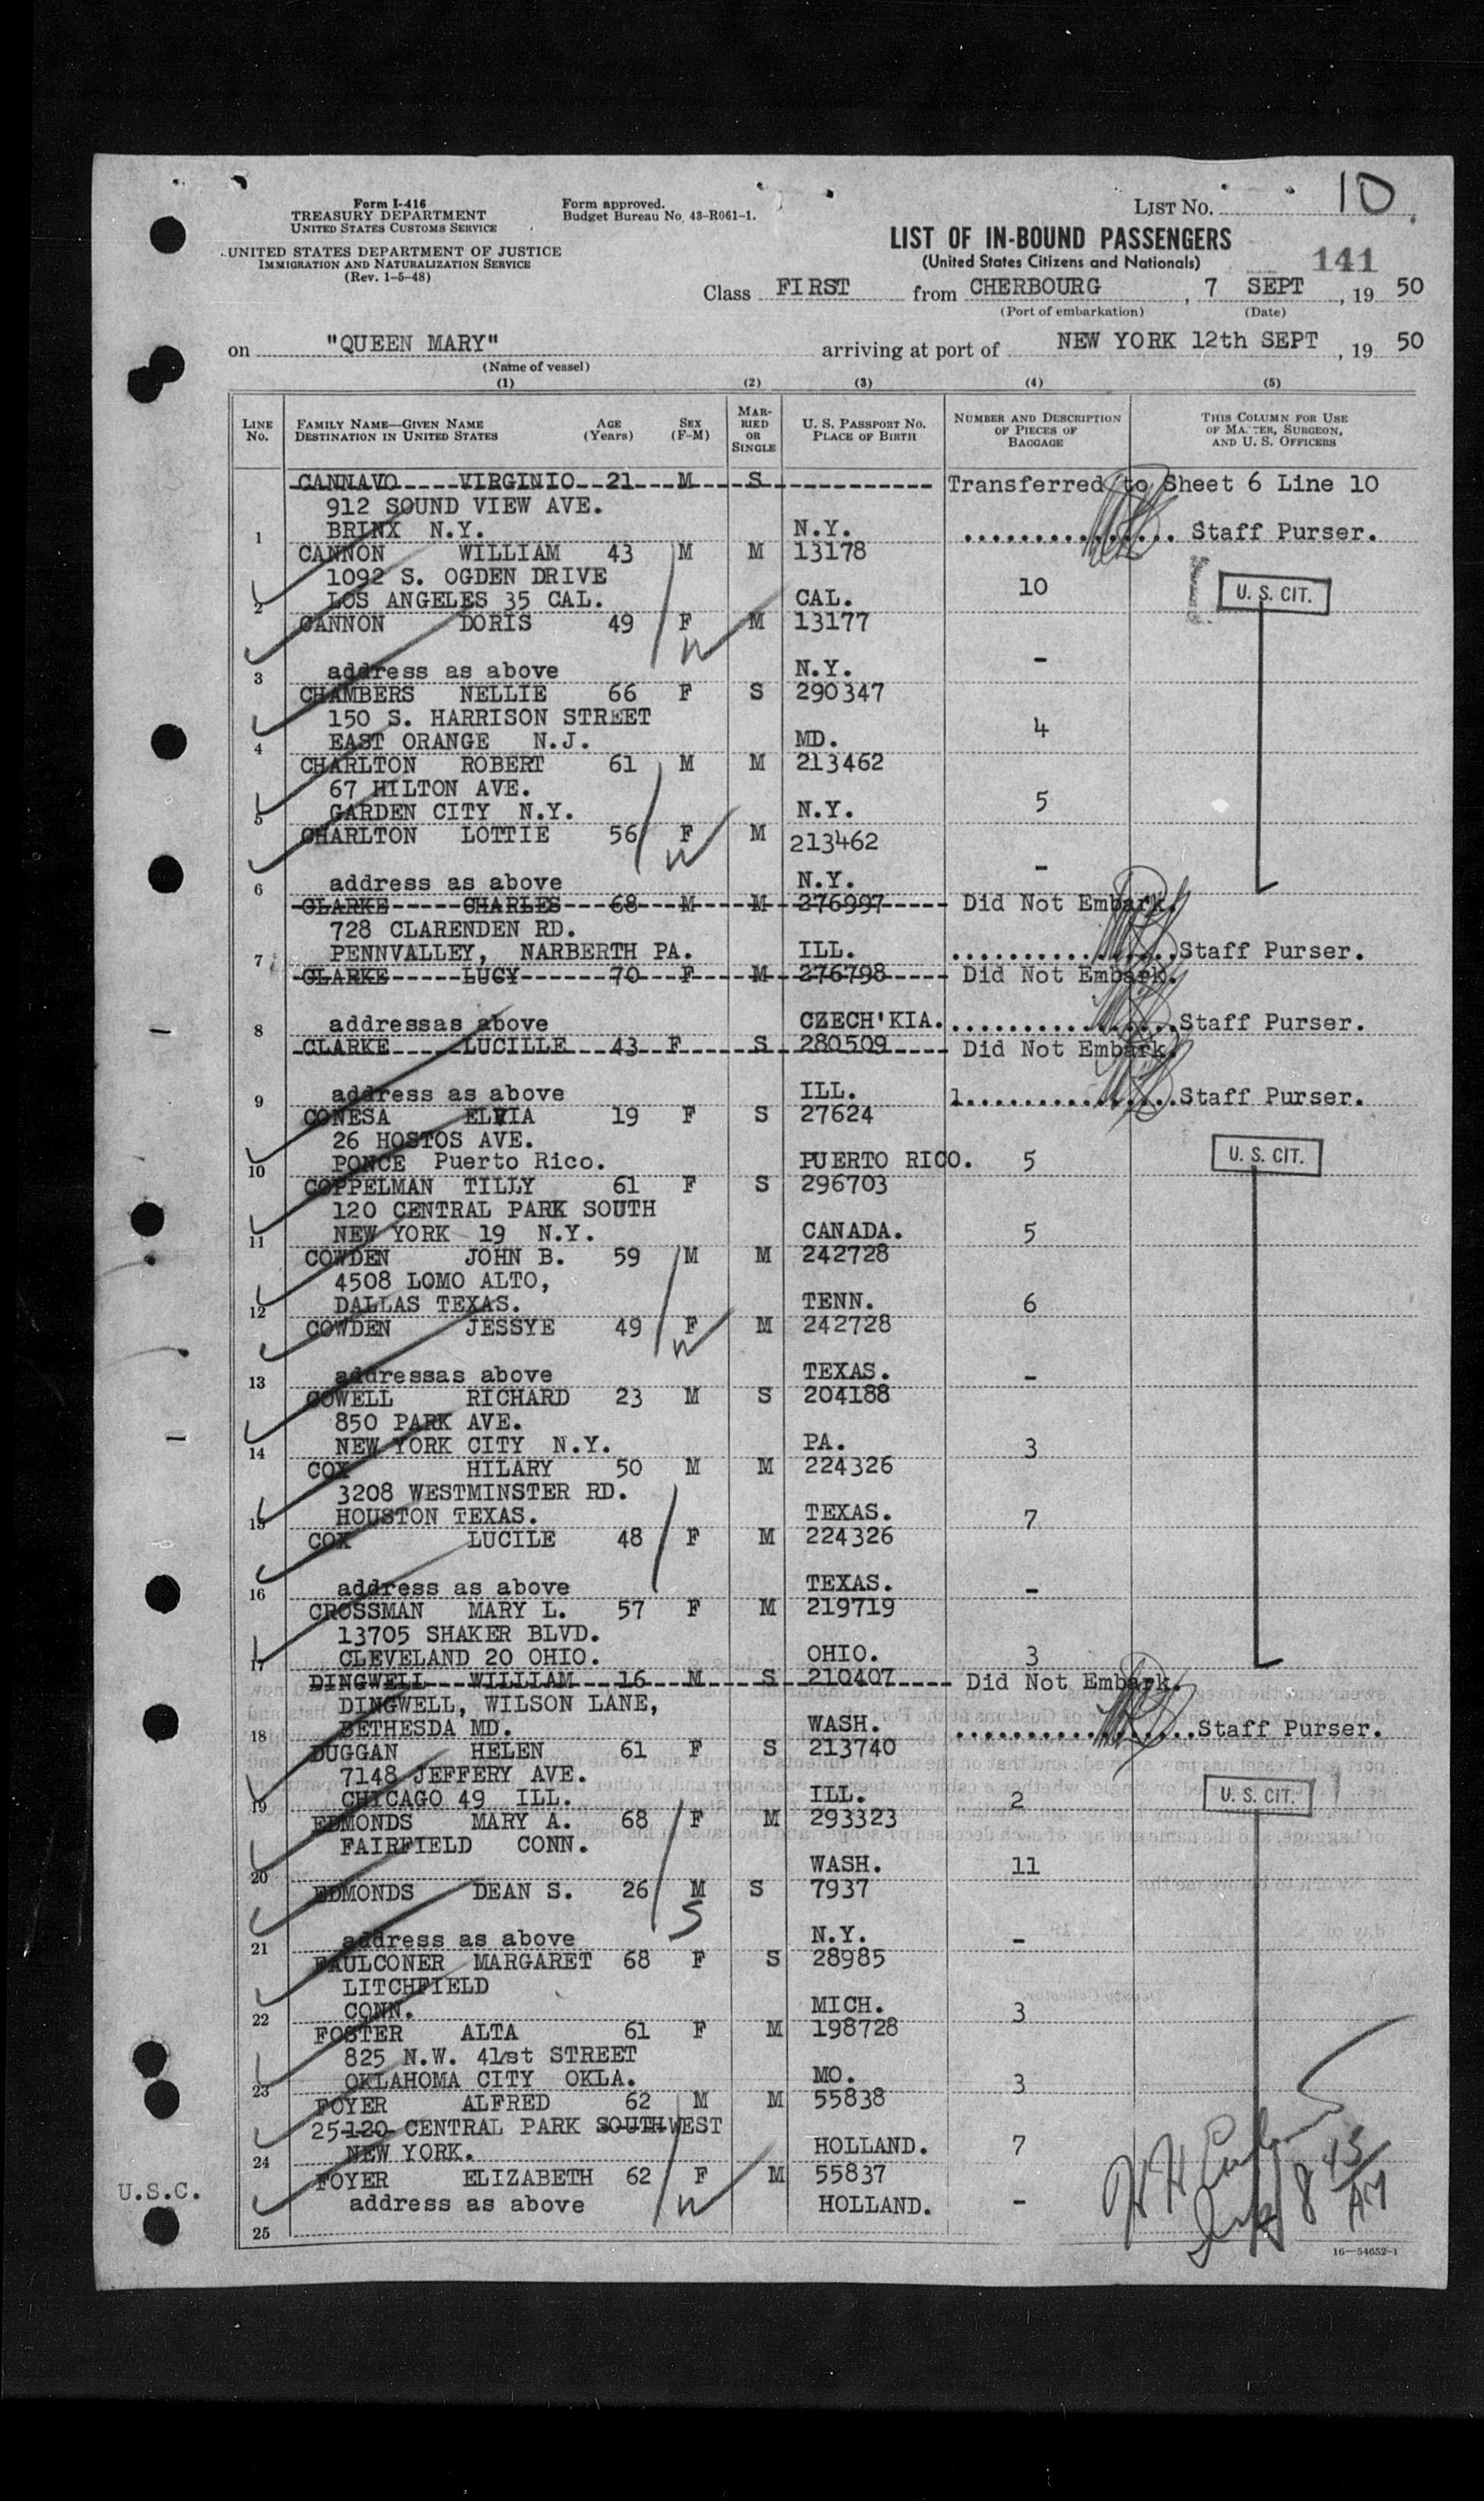 10
Form I-416
TREASURY DEPARTMENT
UNITED STATES CUSTOMS SERVICE
UNITED STATES DEPARTMENT OF JUSTICE
IMMIGRATION AND NATURALIZATION SERVICE
(Rev. 1-5-48)
Form approved.
Budget Bureau No. 43-R061-1.
LIST No.
LIST OF IN-BOUND PASSENGERS
(United States Citizens and Nationals)
141
Class FIRST from CHERBOURG, 7 SEPT, 19 50
(Port of embarkation) (Date)
on "QUEEN MARY" arriving at port of NEW YORK 12th SEPT, 19 50
(Name of vessel)
(1) (2) (3) (4) (5)
LINE No. FAMILY NAME—GIVEN NAME DESTINATION IN UNITED STATES AGE (Years) SEX (F-M) MARRIED OR SINGLE U. S. PASSPORT NO. PLACE OF BIRTH NUMBER AND DESCRIPTION OF PIECES OF BAGGAGE THIS COLUMN FOR USE OF MASTER, SURGEON, AND U. S. OFFICERS
CANNAVO VIRGINIO 21 M S Transferred to Sheet 6 Line 10
912 SOUND VIEW AVE.
1 BRINX N.Y. N.Y. Staff Purser.
CANNON WILLIAM 43 M M 13178
1092 S. OGDEN DRIVE 10 U. S. CIT.
2 LOS ANGELES 35 CAL. CAL.
CANNON DORIS 49 F M 13177
W
3 address as above N.Y. -
CHAMBERS NELLIE 66 F S 290347
150 S. HARRISON STREET
4 EAST ORANGE N.J. MD. 4
CHARLTON ROBERT 61 M M 213462
67 HILTON AVE.
5 GARDEN CITY N.Y. N.Y. 5
CHARLTON LOTTIE 56 F M 213462
W
6 address as above N.Y. -
CLARKE CHARLES 68 M M 276997 Did Not Embark.
728 CLARENDEN RD.
7 PENNVALLEY, NARBERTH PA. ILL. Staff Purser.
CLARKE LUCY 70 F M 276798 Did Not Embark.
8 addressas above CZECH'KIA. Staff Purser.
CLARKE LUCILLE 43 F S 280509 Did Not Embark.
9 address as above ILL. 1 Staff Purser.
CONESA ELVIA 19 F S 27624
26 HOSTOS AVE.
10 PONCE Puerto Rico. PUERTO RICO. 5 U. S. CIT.
COPPELMAN TILLY 61 F S 296703
120 CENTRAL PARK SOUTH
11 NEW YORK 19 N.Y. CANADA. 5
COWDEN JOHN B. 59 M M 242728
4508 LOMO ALTO,
12 DALLAS TEXAS. TENN. 6
COWDEN JESSYE 49 F M 242728
W
13 addressas above TEXAS. -
COWELL RICHARD 23 M S 204188
850 PARK AVE.
14 NEW YORK CITY N.Y. PA. 3
COX HILARY 50 M M 224326
3208 WESTMINSTER RD.
15 HOUSTON TEXAS. TEXAS. 7
COX LUCILE 48 F M 224326
16 address as above TEXAS. -
CROSSMAN MARY L. 57 F M 219719
13705 SHAKER BLVD.
17 CLEVELAND 20 OHIO. OHIO. 3
DINGWELL WILLIAM 16 M S 210407 Did Not Embark.
DINGWELL, WILSON LANE,
18 BETHESDA MD. WASH. Staff Purser.
DUGGAN HELEN 61 F S 213740
7148 JEFFERY AVE.
19 CHICAGO 49 ILL. ILL. 2 U. S. CIT.
EDMONDS MARY A. 68 F M 293323
FAIRFIELD CONN.
20 WASH. 11
EDMONDS DEAN S. 26 M S 7937
S
21 address as above N.Y. -
FAULCONER MARGARET 68 F S 28985
LITCHFIELD
22 CONN. MICH. 3
FOSTER ALTA 61 F M 198728
825 N.W. 41st STREET
23 OKLAHOMA CITY OKLA. MO. 3
FOYER ALFRED 62 M M 55838
25 120 CENTRAL PARK SOUTH WEST
24 NEW YORK. HOLLAND. 7
FOYER ELIZABETH 62 F M 55837
W
address as above HOLLAND. -
25
U.S.C.
16—54652-1